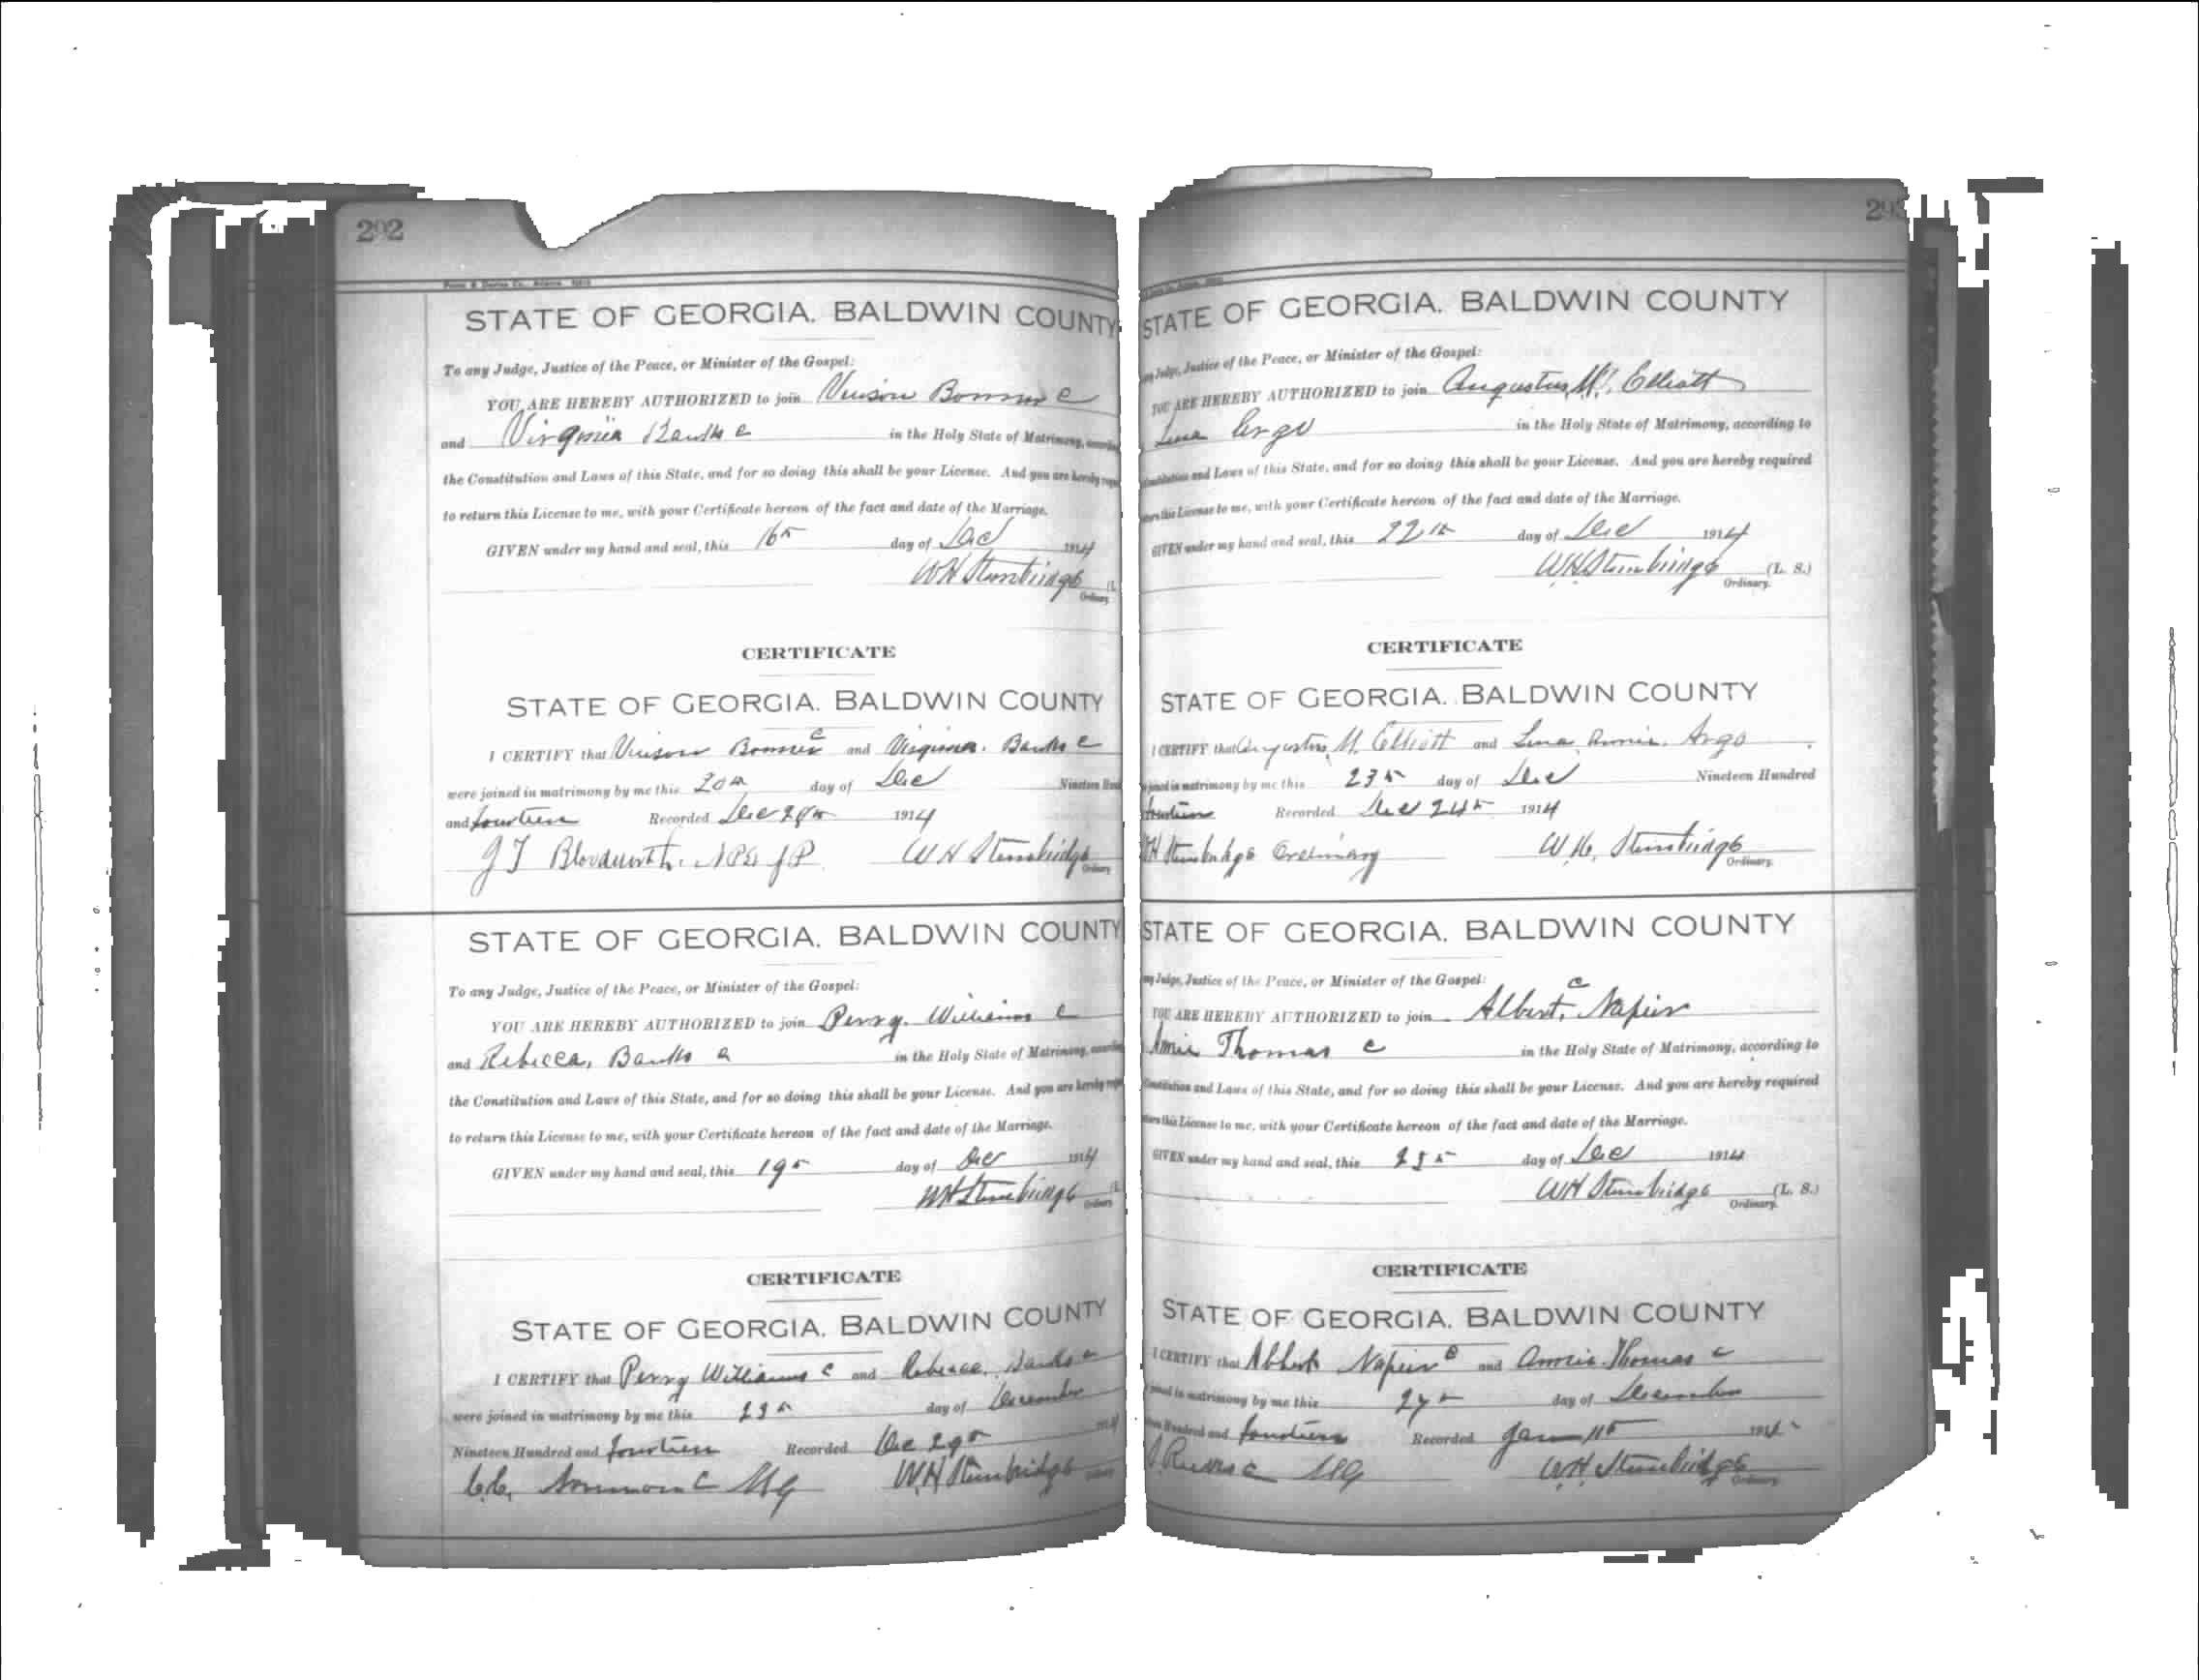 292
STATE OF GEORGIA. BALDWIN COUNTY
To any Judge, Justice of the Peace, or Minister of the Gospel:
YOU ARE HEREBY AUTHORIZED to join Vinson Bonner C
and Virginia Banks C in the Holy State of Matrimony,
the Constitution and Laws of this State, and for so doing this shall be your License. And you are hereby
to return this License to me, with your Certificate hereon of the fact and date of the Marriage.
GIVEN under my hand and seal, this 16th day of Dec 1914
W H Stembridge
Ordinary
CERTIFICATE
STATE OF GEORGIA. BALDWIN COUNTY
I CERTIFY that Vinson Bonner C and Virginia. Banks C
were joined in matrimony by me this 20th day of Dec Nineteen
and fourteen Recorded Dec 1914
J T Bloodworth. W H Stembridge
Ordinary
STATE OF GEORGIA. BALDWIN COUNTY
To any Judge, Justice of the Peace, or Minister of the Gospel:
YOU ARE HEREBY AUTHORIZED to join Perry. Williams C
and Rebecca, Banks in the Holy State of Matrimony,
the Constitution and Laws of this State, and for so doing this shall be your License. And you are hereby
to return this License to me, with your Certificate hereon of the fact and date of the Marriage.
GIVEN under my hand and seal, this 19th day of Dec 1914
W H Stembridge
Ordinary
CERTIFICATE
STATE OF GEORGIA. BALDWIN COUNTY
I CERTIFY that Perry Williams C and Rebecca, Banks
were joined in matrimony by me this day of December
Nineteen Hundred and fourteen Recorded Dec 29th 1914
C MG W.H Stembridge
293
STATE OF GEORGIA. BALDWIN COUNTY
Judge, Justice of the Peace, or Minister of the Gospel:
YOU ARE HEREBY AUTHORIZED to join Augustus M. Elliott
Lena Argo in the Holy State of Matrimony, according to
and Laws of this State, and for so doing this shall be your License. And you are hereby required
this License to me, with your Certificate hereon of the fact and date of the Marriage.
GIVEN under my hand and seal, this 22th day of Dec 1914
W H Stembridge (L. S.)
Ordinary.
CERTIFICATE
STATE OF GEORGIA. BALDWIN COUNTY
I CERTIFY that Augustus M. Elliott and Lena Annie. Argo
in matrimony by me this 23th day of Dec Nineteen Hundred
fourteen Recorded Dec 24th 1914
W H Stembridge Ordinary W. H. Stembridge
Ordinary.
STATE OF GEORGIA. BALDWIN COUNTY
Judge, Justice of the Peace, or Minister of the Gospel:
YOU ARE HEREBY AUTHORIZED to join Albert, C Napier
Annie Thomas C in the Holy State of Matrimony, according to
and Laws of this State, and for so doing this shall be your License. And you are hereby required
this License to me, with your Certificate hereon of the fact and date of the Marriage.
GIVEN under my hand and seal, this day of Dec 1914
W H Stembridge (L. S.)
Ordinary.
CERTIFICATE
STATE OF GEORGIA. BALDWIN COUNTY
I CERTIFY that Albert Napier C and Annie Thomas C
in matrimony by me this day of December
Hundred and fourteen Recorded Jan 11th
C MG W.H. Stembridge
Ordinary